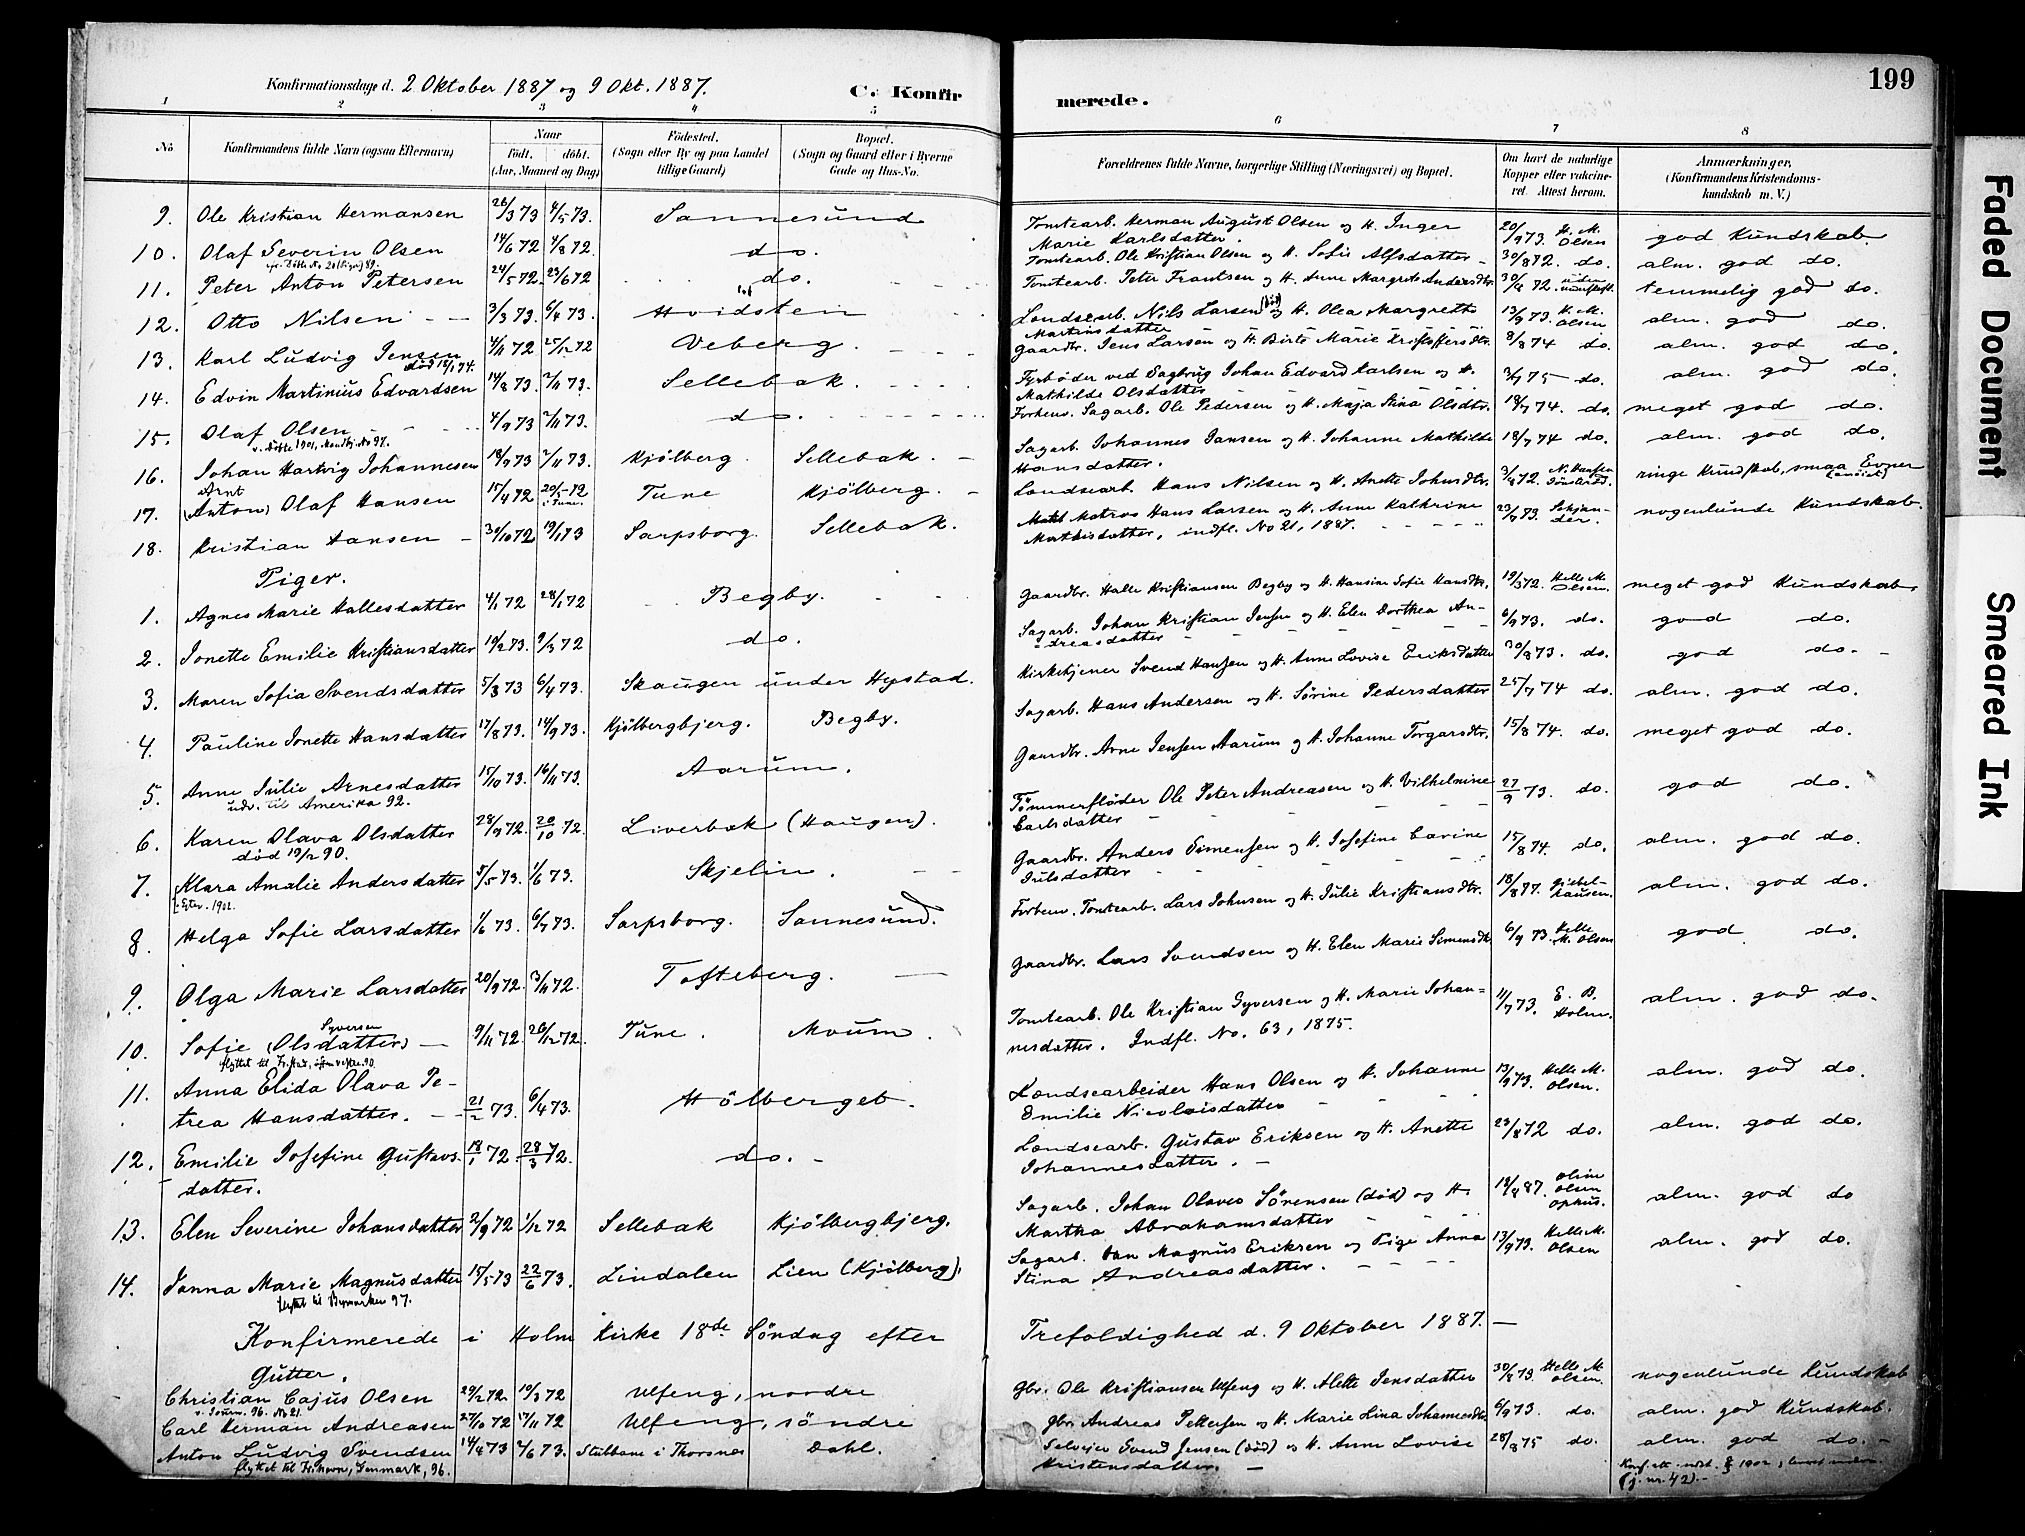 Konfirmationsdage d. 2 Oktober 1887 og 9 Okt. 1887. C. Konfir merede. 199
1 2 3 4 5 6 7 8
No Konfirmandens fulde Navn (ogsaa Efternavn) Naar Födt. döbt. (Aar, Maaned og Dag) Födested. (Sogn eller By og paa Landet tillige Gaard) Bopæl. (Sogn og Gaard eller i Byerne Gade og Hus-No. Forældrenes fulde Navne, borgerlige Stilling (Næringsvei) og Bopæl. Om havt de naturlige Kopper eller vakcineret. Attest herom. Anmærkninger, (Konfirmandens Kristendomskundskab m. V.)
9. Ole Kristian Hermansen 26/3 73 4/5 73. Sannesund Tomtearb. Herman August Olsen og H. Inger Marie Karlsdatter. 20/9 73. H. M. Olsen god Kundskab
10. Olaf Severin Olsen 14/6 72 4/8 72. do. Tomtearb. Ole Kristian Olsen og H. Sofie Alfsdatter 30/8 72. do. alm. god do.
11. Peter Anton Petersen 24/5 72. 23/6 72 do. Tomtearb. Peter Frantsen og H. Anne Margrete Andersdtr. 30/8 72. uden underskrift. temmelig god do.
12. Otto Nilsen 3/3 73. 6/4 73. Hvidsten Londsearb. Nils Larsen (död) og H. Olea Margrethe Martinsdatter 13/9 73. H. M. Olsen alm. god do.
13. Karl Ludvig Jensen 4/11 72 25/12 72 Veberg. Gaardbr. Jens Larsen og H. Birte Marie Kristoffersdtr. 8/8 74 do. alm. god do.
14. Edvin Martinius Edvardsen 14/8 73. 2/11 73. Sellebak. Fyrböder ved Sagbrug Johan Edvard Karlsen og H. Mathilde Olsdatter 3/7 75 do. alm. god do.
15. Olaf Olsen 4/9 73 2/11 73. do. Forhenv. Sagarb. Ole Pedersen og H. Maja Stina Olsdtr. 18/7 74. do. meget god do.
16. Johan Hartvig Johannesen 18/9 73 2/11 73. Kjölberg. Sellebak. Sagarb. Johannes Jansen og H. Johanne Mathilde Hansdatter. 18/7 74 do. alm. god do.
17. Arnt (Anton) Olaf Hansen 15/4 72 20/5 72 i Tune. Tune Kjölberg. Londsearb. Hans Nilsen og H. Anette Johnsdtr. 3/8 72. ringe Kundskab, smaa Evner
18. Kristian Hansen 30/10 72 19/1 73 Sarpsborg. Sellebak. Matros Hans Larsen og H. Anne Kathrine Mathisdatter, indfl. No 21, 1887. 23/7 73. nogenlunde Kundskab.
Piger.
1. Agnes Marie Hallesdatter 4/1 72 28/1 72 Begby. Gaardbr. Halle Kristiansen Begby og H. Hansine Sofie Hansdtr. 19/3 72. Helle M. Olsen. meget god Kundskab
2. Jonette Emilie Kristiansdatter 19/2 73. 9/3 72 do. Sagarb. Johan Kristian Jensen og H. Elen Dorthea Andreasdatter 6/9 73. do. god do.
3. Maren Sofia Svendsdatter 5/3 73 6/4 73. Skaugen under Hystad. Kirketjener Svend Hansen og H. Anne Lovise Eriksdatter 30/8 73. do. god do.
4. Pauline Jonette Hansdatter 17/8 73. 14/9 73. Kjölbergbjerg. Begby. Sagarb. Hans Andersen og H. Sörine Pedersdatter 25/7 74 do. alm. god do.
5. Anne Julie Arnesdatter 15/10 73. 16/11 73. Aarum. Gaardbr. Arne Jensen Aarum og H. Johanne Torgarsdtr. 15/8 74. do. meget god do.
udv. til Amerika 92.
6. Karen Olava Olsdatter 28/9 72. 20/10 72. Liverbæk (Haugen). Tömmerflöder Ole Peter Andreasen og H. Vilhelmine Carlsdatter 27/9 73. do. god do.
död 19/2 90.
7. Klara Amalie Andersdatter 5/5 73. 1/6 73. Skjelin. Gaardbr. Anders Simensen og H. Josefine Carine Julsdatter 15/8 74. do. alm. god do.
8. Helga Sofie Larsdatter 1/6 73. 6/7 73. Sarpsborg. Sannesund. Forhenv. Tomtearb. Lars Johnsen og H. Julie Kristiansdtr. 18/8 77. alm. god do.
9. Olga Marie Larsdatter 20/9 72. 3/11 72. Tofteberg. Gaardbr. Lars Svendsen og H. Elen Marie Simensdtr. 6/9 73. Helle M. Olsen god do.
10. Sofie (Olsdatter) Syversen 9/11 72. 26/12 72. Tune. Moum. Tomtearb. Ole Kristian Syversen og H. Marie Johannesdatter. Indfl. No. 63, 1875. 11/7 73. E. B. Holm. alm. god do.
11. Anna Elida Olava Petrea Hansdatter. 21/2 73. 6/4 73. Hölberget. Londsearbeider Hans Olsen og H. Johanne Emilie Nicolaisdatter 13/9 73. Helle M. Olsen. alm. god do.
12. Emilie Josefine Gustavsdatter. 18/1 72 28/3 72. do. Londsearb. Gustav Eriksen og H. Anette Johannesdatter. 23/8 72 do. alm. god do.
13. Elen Severine Johansdatter 2/9 72 1/12 72 Sellebak Kjölbergbjerg. Sagarb. Johan Olaves Sörensen (död) og H. Martha Abrahamsdatter 18/8 87. Oline Olsen Ophus. alm. god do
14. Janna Marie Magnusdatter 15/5 73 22/6 73. Lindalen Lien (Kjölberg). Sagarb. Magnus Eriksen og Pige Anna Stina Andreasdatter. 13/9 73. Helle M. Olsen alm. god do.
flyttet til Bymarken 97.
Konfirmerede i Holm Kirke 18de Söndag efter Trefoldighed d. 9 Oktober 1887.
Gutter.
Christian Cajus Olsen 29/2 72 19/3 72 Ulfeng, nordre Gbr. Ole Kristiansen Ulfeng og H. Alette Jensdatter 30/8 73. Helle M. Olsen. nogenlunde Kundskab
Carl Herman Andreasen 27/10 72 17/11 72 Ulfeng, söndre Gbr. Andreas Pettersen og H. Marie Lina Johannesdtr. 6/9 73. do. alm. god Kundskab.
Anton Ludvig Svendsen 14/4 73 2/6 73. i Thorsnes Dahl. Selveier Svend Jensen (död) og H. Anne Lovise Kristensdatter. 28/8 75 do. alm. god do.
flyttet til Fr.havn, Danmark, 96. (j. nr. 42).
Faded Document
Smeared Ink